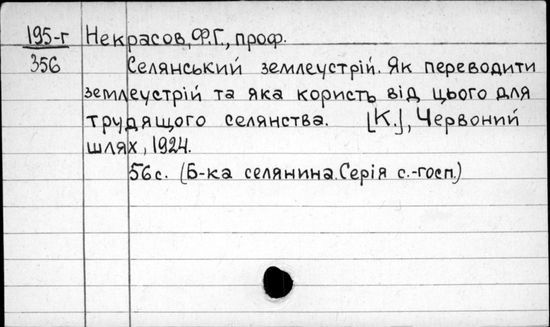 195-г Некрасов, Ф.Г., проф.
356 Селянський землеустрій. Як переводити
землеустрій та яка користь від цього для
трудящого селянства. [К.], Червоний
шлях, 1924.
56с. (Б-ка селянина. Серія с.-госп.)